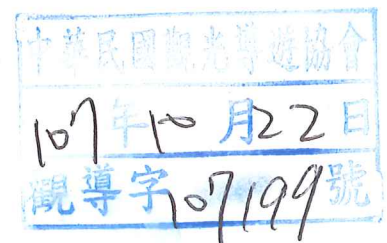 中華民國觀光導遊協會
107年10月22日
觀導字107199號